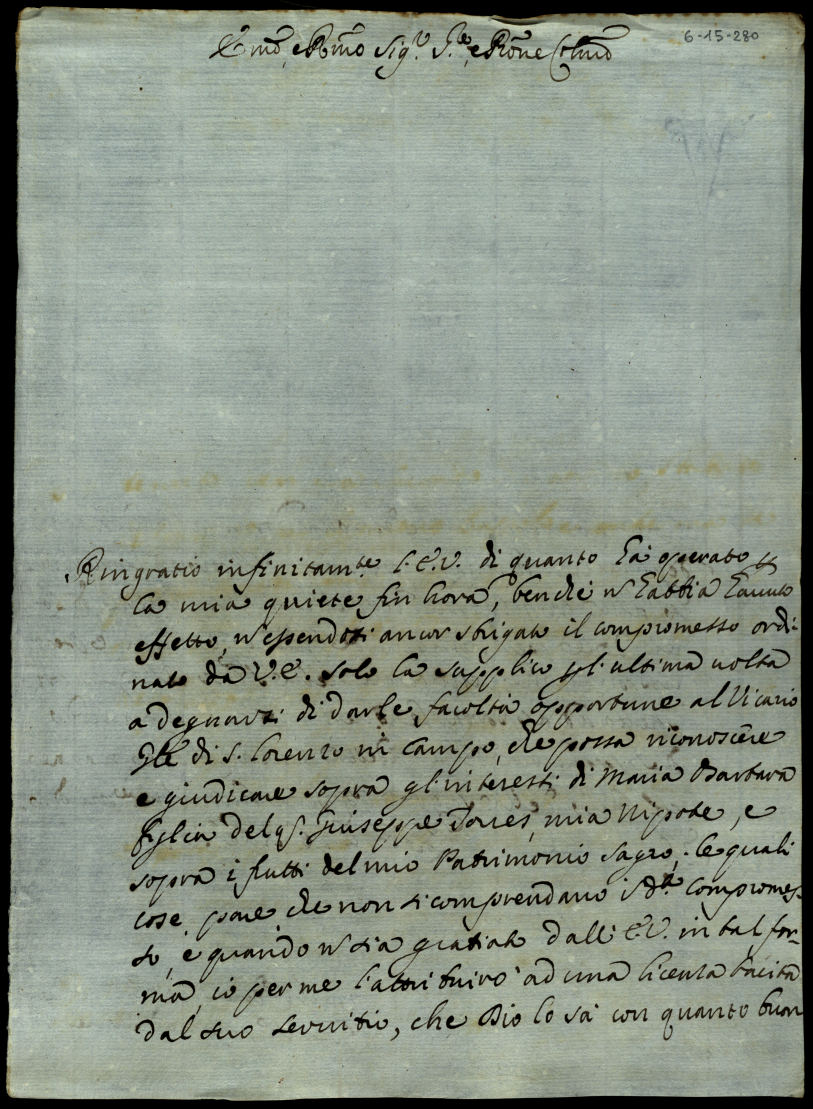 6-15-280
Emo, e Rmo Sigr. Pe, e Prone Colmo
Ringratio infinitamte. l'E.V. di quanto hà operato p
la mia quiete fin hora, benche n habbia hauuto
effetto, n essendosi ancor sbrigato il compromesso ordi:
nato da V.E. solo la supplico p l'ultima uolta
a degnarsi di darle facoltà opportune al Vicario
Gle di S. Lorenzo in Campo, che possa riconoscere
e giudicare sopra gl'interessi di Maria Barbara
figlia del q. Giuseppe Torres, mia Nipote, e
sopra i frutti del mio Patrimonio sagro; le quali
cose pare che non si comprendano i dto. compromes-
so, e quando n sia gratiato dall'E.V. in tal for-
ma, io per me l'attribuirò ad una licenza tacita
dal suo seruitio, che Dio lo sà con quanto buon